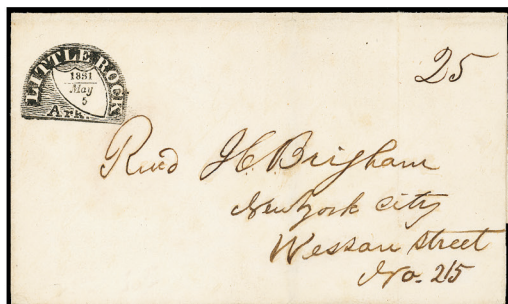 LITTLE ROCK
1831
May
5
Ark.
25
Revd J C Brigham
New York City
Nessau Street
No. 215